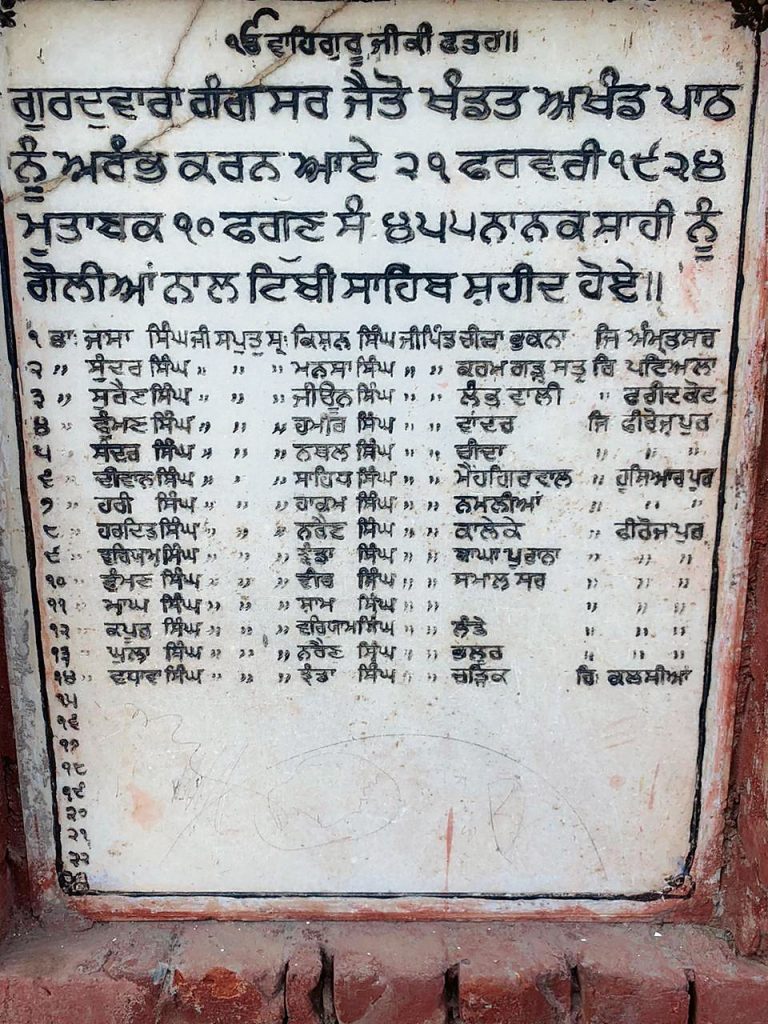 ੴ ਵਾਹਿਗੁਰੂ ਜੀ ਕੀ ਫਤਹ॥
ਗੁਰਦੁਵਾਰਾ ਗੰਗ ਸਰ ਜੈਤੋ ਖੰਡਤ ਅਖੰਡ ਪਾਠ
ਨੂੰ ਅਰੰਭ ਕਰਨ ਆਏ ੨੧ ਫਰਵਰੀ ੧੯੨੪
ਮੁਤਾਬਕ ੧੦ ਫਗਣ ਸੰ ੪੫੫ ਨਾਨਕ ਸ਼ਾਹੀ ਨੂੰ
ਗੋਲੀਆਂ ਨਾਲ ਟਿਬੀ ਸਾਹਿਬ ਸ਼ਹੀਦ ਹੋਏ॥
੧ ਭਾ: ਜਸਾ ਸਿੰਘ ਜੀ ਸਪੁਤ੍ਰ ਸ੍ਰ: ਕਿਸ਼ਨ ਸਿੰਘ ਜੀ ਪਿੰਡ ਚੀਚਾ ਭਕਨਾ ਜਿ ਅੰਮ੍ਰਤਸਰ
੨ " ਸੁੰਦਰ ਸਿੰਘ " " " ਮਨਸਾ ਸਿੰਘ " " ਕਰਮ ਗੜ੍ਹ ਸਤ੍ਰ ਰਿ ਪਟਿਆਲਾ
੩ " ਸੁਰੈਣ ਸਿੰਘ " " " ਜੀਊਨ ਸਿੰਘ " " ਲੰਭ ਵਾਲੀ " ਫਰੀਦਕੋਟ
੪ " ਘੁੰਮਣ ਸਿੰਘ " " " ਹਮੀਰ ਸਿੰਘ " " ਵਾਂਦਰ ਜਿ ਫੀਰੋਜ਼ਪੁਰ
੫ " ਸੰਦਰ ਸਿੰਘ " " " ਨਥਲ ਸਿੰਘ " " ਚੀਦਾ " " "
੬ " ਦੀਵਾਨ ਸਿੰਘ " " " ਸਾਹਿਬ ਸਿੰਘ " " ਮੈਹਗਿਰਵਾਲ " ਹੁਸਿਆਰ ਪੁਰ
੭ " ਹਰੀ ਸਿੰਘ " " " ਹਾਕਮ ਸਿੰਘ " " ਨਮਲੀਆਂ " " "
੮ " ਹਰਦਿਤ ਸਿੰਘ " " " ਨਰੈਣ ਸਿੰਘ " " ਕਾਲੇਕੇ " ਫੀਰੋਜਪੁਰ
੯ " ਵਰਿਯਾਮ ਸਿੰਘ " " " ਝੰਡਾ ਸਿੰਘ " " ਬਾਘਾ ਪੁਰਾਨਾ " " "
੧੦ " ਘੁੰਮਣ ਸਿੰਘ " " " ਵੀਰ ਸਿੰਘ " " ਸਮਾਲ ਸਰ " " "
੧੧ " ਮਾਘ ਸਿੰਘ " " " ਸਾਮ ਸਿੰਘ " " " " "
੧੨ " ਕਪੂਰ ਸਿੰਘ " " " ਵਰਿਯਾਮ ਸਿੰਘ " " ਲੰਡੇ " " "
੧੩ " ਘੁਲਾ ਸਿੰਘ " " " ਨਰੈਣ ਸਿੰਘ " " ਭਲੂਰ " " "
੧੪ " ਵਧਾਵਾ ਸਿੰਘ " " " ਝੰਡਾ ਸਿੰਘ " " ਚੜਿਕ ਰਿ ਕਲਸੀਆਂ
੧੫
੧੬
੧੭
੧੮
੧੯
੨੦
੨੧
੨੨